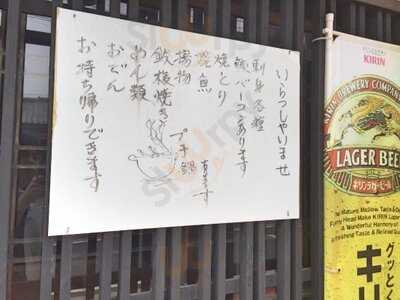 いらっしゃいませ
刺身各種
焼とり
焼魚
揚物
鉄板焼き
めん類
おでん
プチ鍋
あります
お持ち帰りできます
KIRIN
KIRIN BREWERY COMPANY
LAGER BEER
キリンラガービール
The Mature, Mellow Taste &
Fully Head Make KIRIN Lager
A Wonderful Harmony of
Refreshing Taste & Re
グッとく
キリ